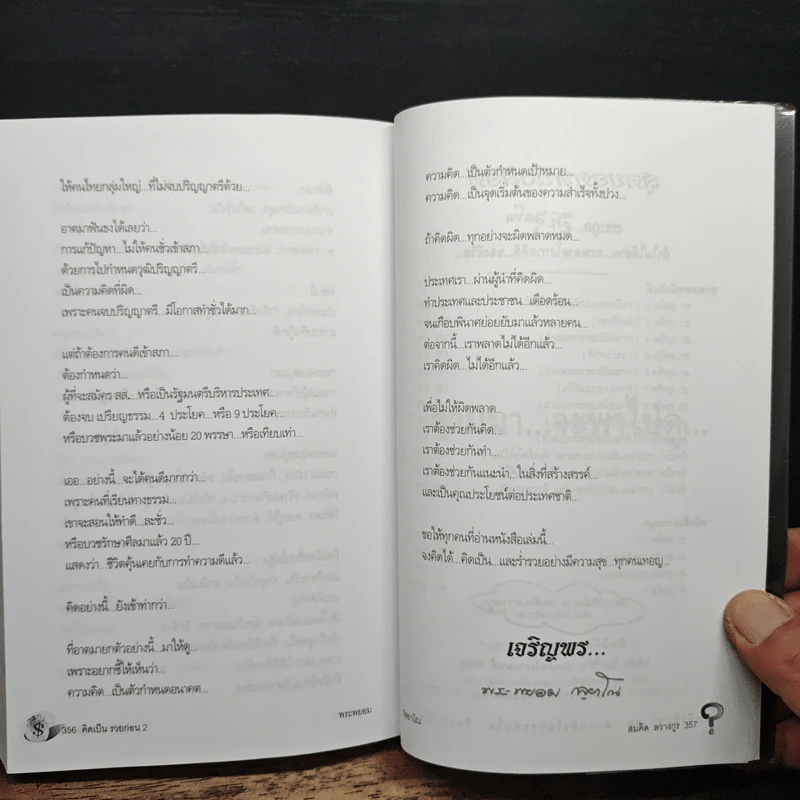 ให้คนไทยกลุ่มใหญ่...ที่ไม่จบปริญญาตรีด้วย...
อาตมาฟันธงได้เลยว่า...
การแก้ปัญหา...ไม่ให้คนชั่วเข้าสภา...
ด้วยการไปกำหนดวุฒิปริญญาตรี...
เป็นความคิดที่ผิด...
เพราะคนจบปริญญาตรี...มีโอกาสทำชั่วได้มาก...
แต่ถ้าต้องการคนดีเข้าสภา...
ต้องกำหนดว่า...
ผู้ที่จะสมัคร สส....หรือเป็นรัฐมนตรีบริหารประเทศ...
ต้องจบ เปรียญธรรม...4 ประโยค...หรือ 9 ประโยค...
หรือบวชพระมาแล้วอย่างน้อย 20 พรรษา...หรือเทียบเท่า...
เออ...อย่างนี้...จะได้คนดีมากกว่า...
เพราะคนที่เรียนทางธรรม...
เขาจะสอนให้ทำดี...ละชั่ว...
หรือบวชรักษาศีลมาแล้ว 20 ปี...
แสดงว่า...ชีวิตคุ้นเคยกับการทำความดีแล้ว...
คิดอย่างนี้...ยังเข้าท่ากว่า...
ที่อาตมายกตัวอย่างนี้...มาให้ดู...
เพราะอยากชี้ให้เห็นว่า...
ความคิด...เป็นตัวกำหนดอนาคต...
พระพยอม
356 คิดเป็น รวยก่อน 2
ความคิด...เป็นตัวกำหนดเป้าหมาย...
ความคิด...เป็นจุดเริ่มต้นของความสำเร็จทั้งปวง...
ถ้าคิดผิด...ทุกอย่างจะผิดพลาดหมด...
ประเทศเรา...ผ่านผู้นำที่คิดผิด...
ทำประเทศและประชาชน...เดือดร้อน...
จนเกือบพินาศย่อยยับมาแล้วหลายคน...
ต่อจากนี้...เราพลาดไม่ได้อีกแล้ว...
เราคิดผิด...ไม่ได้อีกแล้ว...
เพื่อไม่ให้ผิดพลาด...
เราต้องช่วยกันคิด...
เราต้องช่วยกันทำ...
เราต้องช่วยกันแนะนำ...ในสิ่งที่สร้างสรรค์...
และเป็นคุณประโยชน์ต่อประเทศชาติ...
ขอให้ทุกคนที่อ่านหนังสือเล่มนี้...
จงคิดได้...คิดเป็น...และร่ำรวยอย่างมีความสุข...ทุกคนเทอญ...
เจริญพร...
พระพยอม กลฺยาโณ
กัลยาโณ
สมคิด ลวางกูร 357